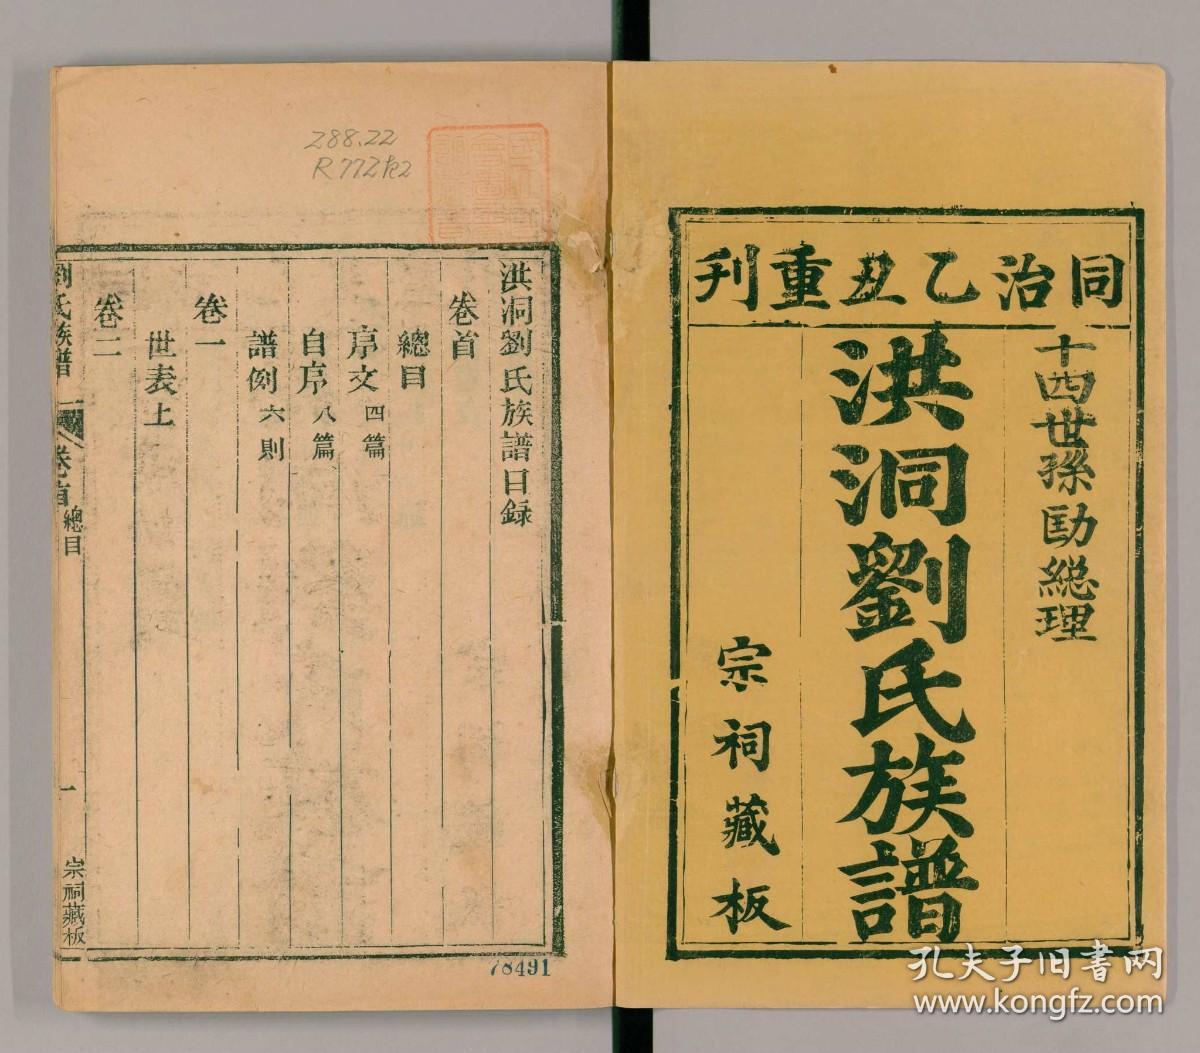 同治乙丑重刊
十四世孫勛總理
洪洞劉氏族譜
宗祠藏板
288.22
R772k2
洪洞劉氏族譜目錄
卷首
總目
序文 四篇
自序 八篇
譜例 六則
卷一
世表上
卷二
劉氏族譜 卷首 總目 一 宗祠藏板
78491
孔夫子旧書网
www.kongfz.com